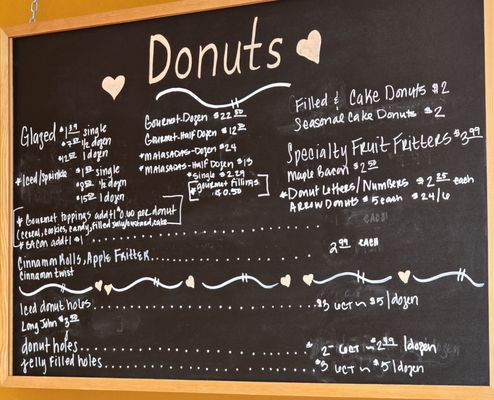 Donuts
Glazed $1.39 single
$7.50 ½ dozen
$12.50 1 dozen
*Iced/Sprinkle $1.50 single
$8.50 ½ dozen
$15.50 1 dozen
* Gourmet toppings addt'l 0.60 per donut
(cereal, cookies, candy, filled jelly/custard, cake
* Bacon addt'l $1
Cinnamon Rolls, Apple Fritter
2.99 each
Cinnamon twist
Gourmet-Dozen $22.50
Gourmet-Half Dozen $12.50
*Malasadas-Dozen $24
*Malasadas-Half Dozen $13
*Single $2.29
*Gourmet fillings
$0.50
Filled & Cake Donuts $2
Seasonal Cake Donuts $2
Specialty Fruit Fritters $3.99
Maple Bacon $2.50
*Donut Letters/Numbers $2.25 each
Arrow Donuts $5 each $24/6
Iced donut holes $3 6ct ~ $5/dozen
Long John $3.50
donut holes $2 6ct ~ $2.99/dozen
Jelly Filled holes $3 6ct ~ $5/dozen